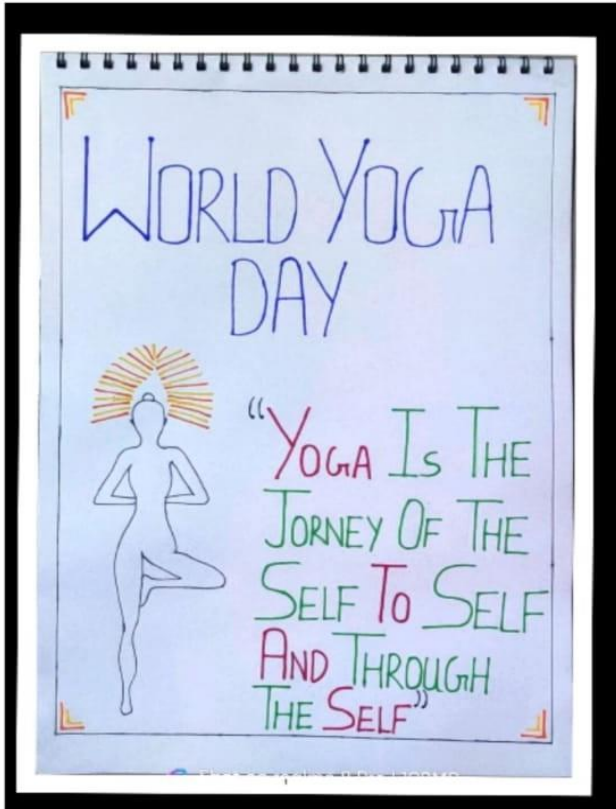 WORLD YOGA
DAY
"YOGA IS THE
JORNEY OF THE
SELF TO SELF
AND THROUGH
THE SELF"